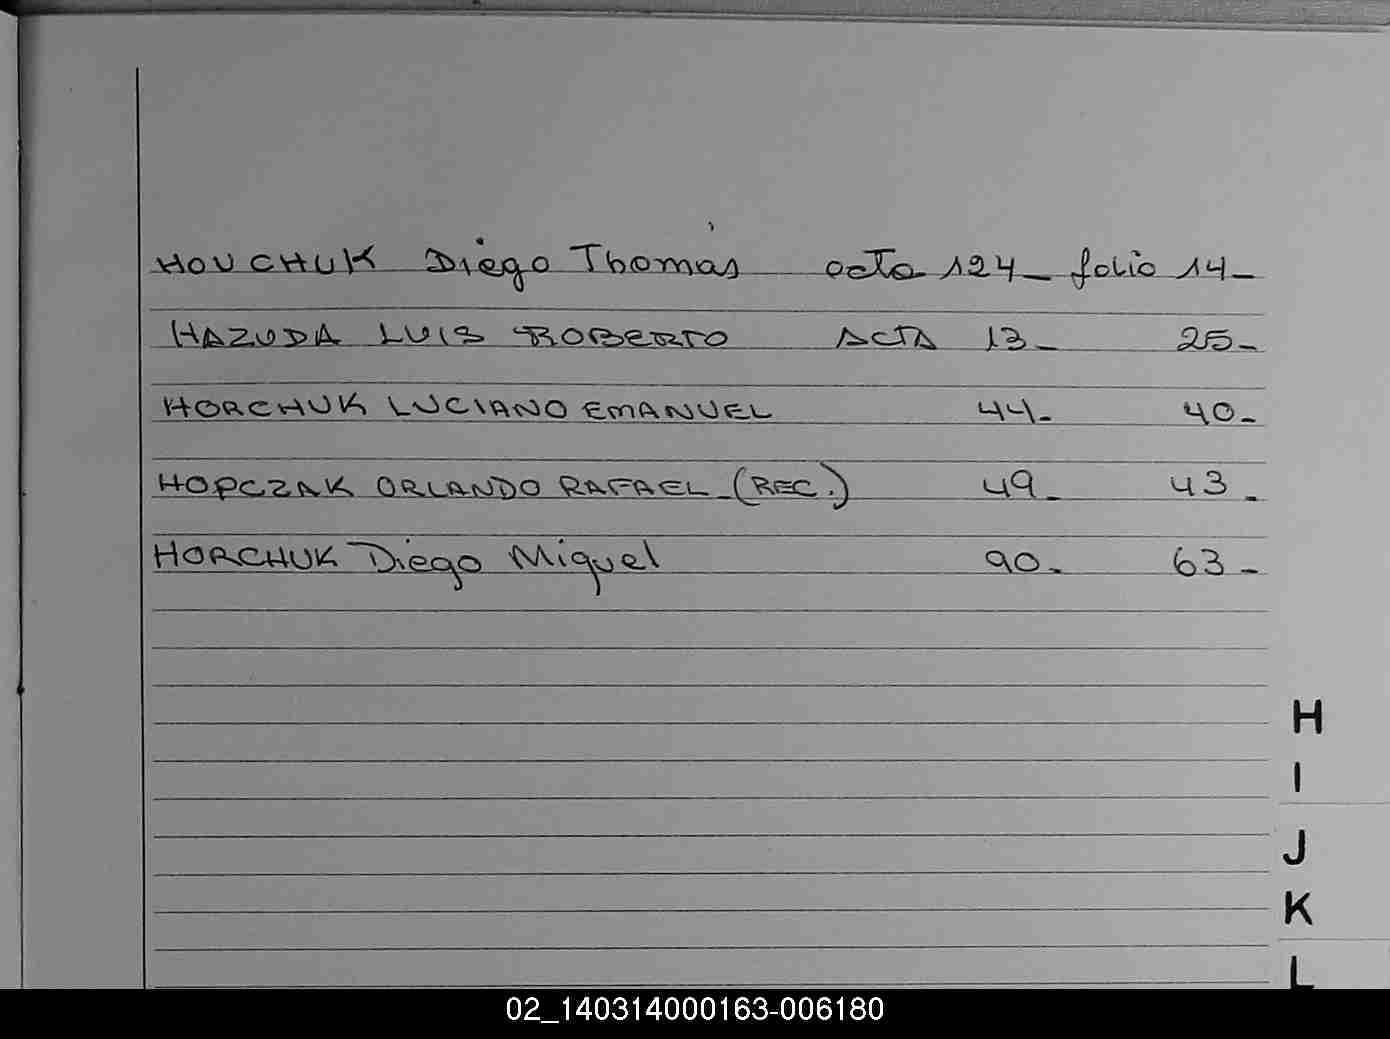 HOVCHUK Diego Thomás acta 124_ folio 14_
HAZUDA LUIS ROBERTO ACTA 13_ 25_
HORCHUK LUCIANO EMANUEL 44_ 40_
HOPCZAK ORLANDO RAFAEL_(REC.) 49_ 43_
HORCHUK Diego Miguel 90_ 63_
H
I
J
K
L
02_140314000163-006180